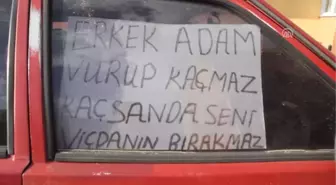 ERKEK ADAM
VURUP KAÇMAZ
KAÇSANDA SENİ
VİCDANIN BIRAKMAZ